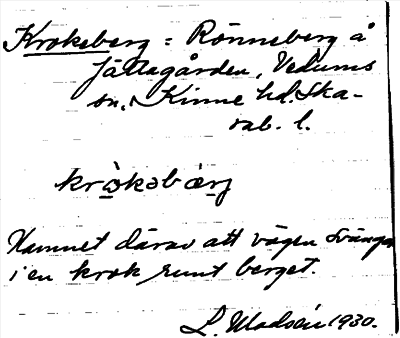 Krokeberg = Rönneberg å
Jättagården, Vedums
sn., Kinne hd. Ska-
rab. l.
kròkəbærj
Namnet därav att vägen svänger
i en krok runt berget.
L. Madsén 1930.